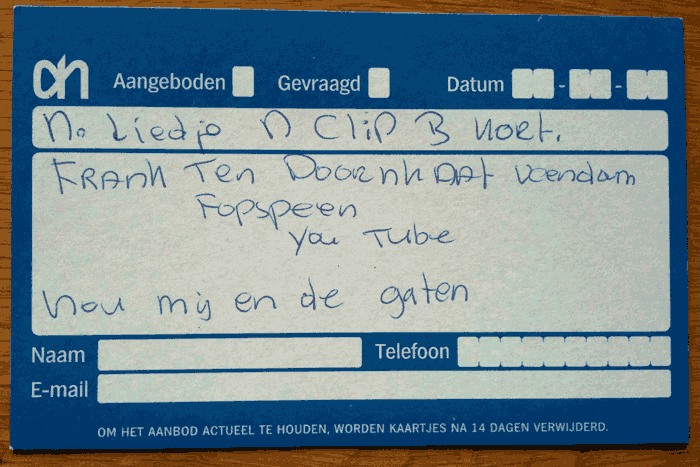 ah Aangeboden Gevraagd Datum - -
N. Liedje N CLIP B Noet.
FRANK Ten DoornkAAt Veendam
Fopspeen
You Tube
Hou mij en de gaten
Naam Telefoon
E-mail
OM HET AANBOD ACTUEEL TE HOUDEN, WORDEN KAARTJES NA 14 DAGEN VERWIJDERD.